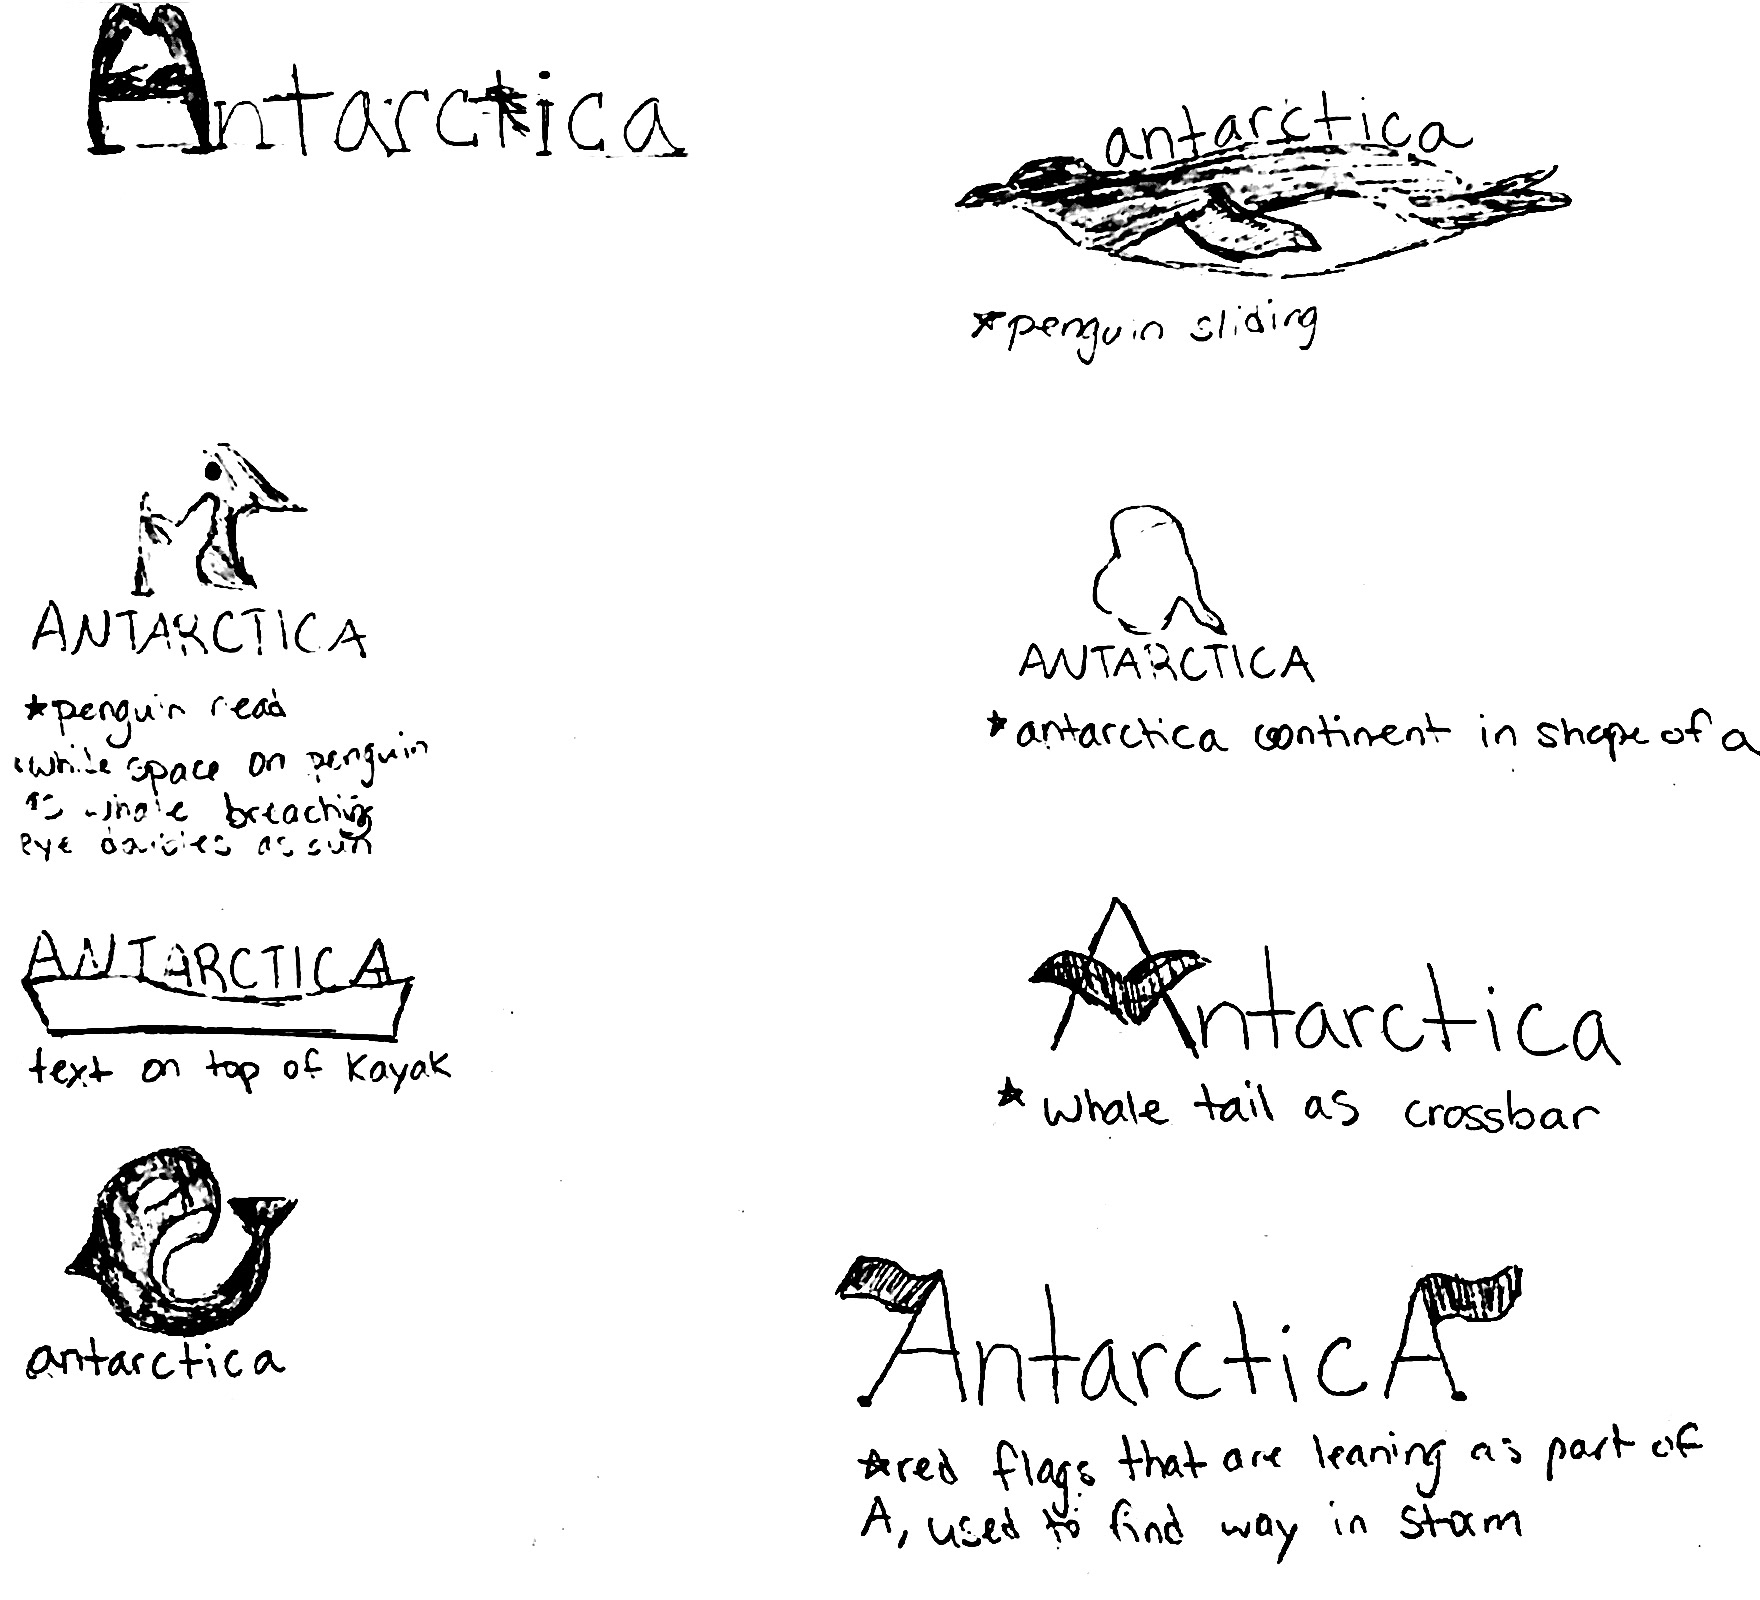 Antarctica
antarctica
*penguin sliding
ANTARCTICA
*penguin read
white space on penguin
as whale breaching
eye doubles as sun
ANTARCTICA
*antarctica continent in shape of a
ANTARCTICA
text on top of kayak
Antarctica
*whale tail as crossbar
antarctica
AntarcticA
*red flags that are leaning as part of
A, used to find way in storm